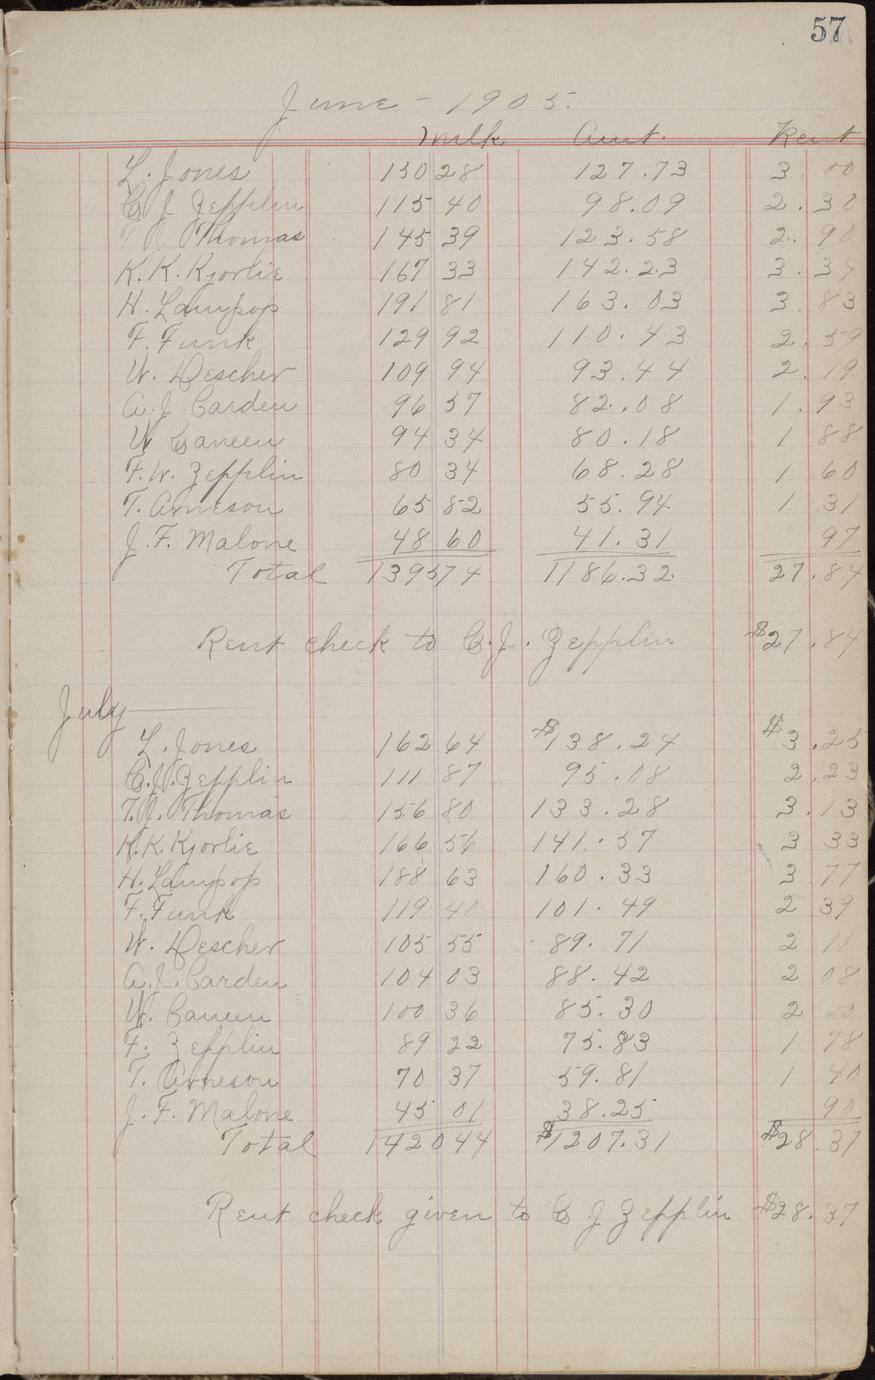 57
June - 1905.
Milk Amt. Rent
L. Jones 150 28 127.73 3.00
C J Zepplin 115 40 98.09 2.30
T J Thomas 145 39 123.58 2.90
K. K. Kjorlie 167 33 142.23 3.34
H. Lampop 191 81 163.03 3.83
F. Funk 129 92 110.43 2.59
W. Descher 109 94 93.44 2.19
A. J. Carden 96 57 82.08 1.93
W Caneen 94 34 80.18 1 88
F. W. Zepplin 80 34 68.28 1 60
T. Arneson 65 82 55.94 1 31
J. F. Malone 48 60 41.31 97
Total 1395 74 1186.32 27.84
Rent check to C. J. Zepplin $27.84
July
L. Jones 162 64 $138.24 $3.25
C. J. Zepplin 111 87 95.08 2.23
T. J. Thomas 156 80 133.28 3.13
K. K. Kjorlie 166 56 141.57 3 33
H. Lampop 188 63 160.33 3 77
F. Funk 119 40 101.49 2 39
W. Descher 105 55 89.71 2 11
A. J. Carden 104 03 88.42 2 08
W. Caneen 100 36 85.30 2 00
F. Zepplin 89 22 75.83 1 78
T. Arneson 70 37 59.81 1 40
J. F. Malone 45 01 38.25 90
Total 1420 44 $1207.31 $28.37
Rent check given to C J Zepplin $28.37